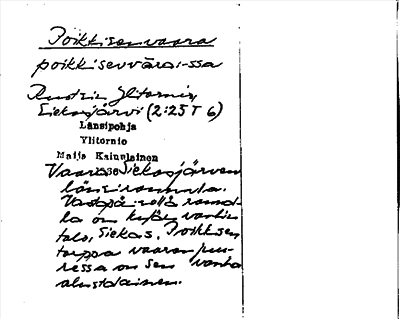 Poikkisenvaara
poikkisevvāra: -ssa
Ruotsin Ylitornio,
Siekasjärvi (2:25 T 6)
Länsipohja
Ylitornio
Maija Kainulainen
1936
Vaara Siekasjärven
länsirannalla.
Vastapäisellä rannal-
la on kylän vanhin
talo, Siekas. Poikkisen
torppa vaaran juu-
ressa on sen vanha
alustalainen.